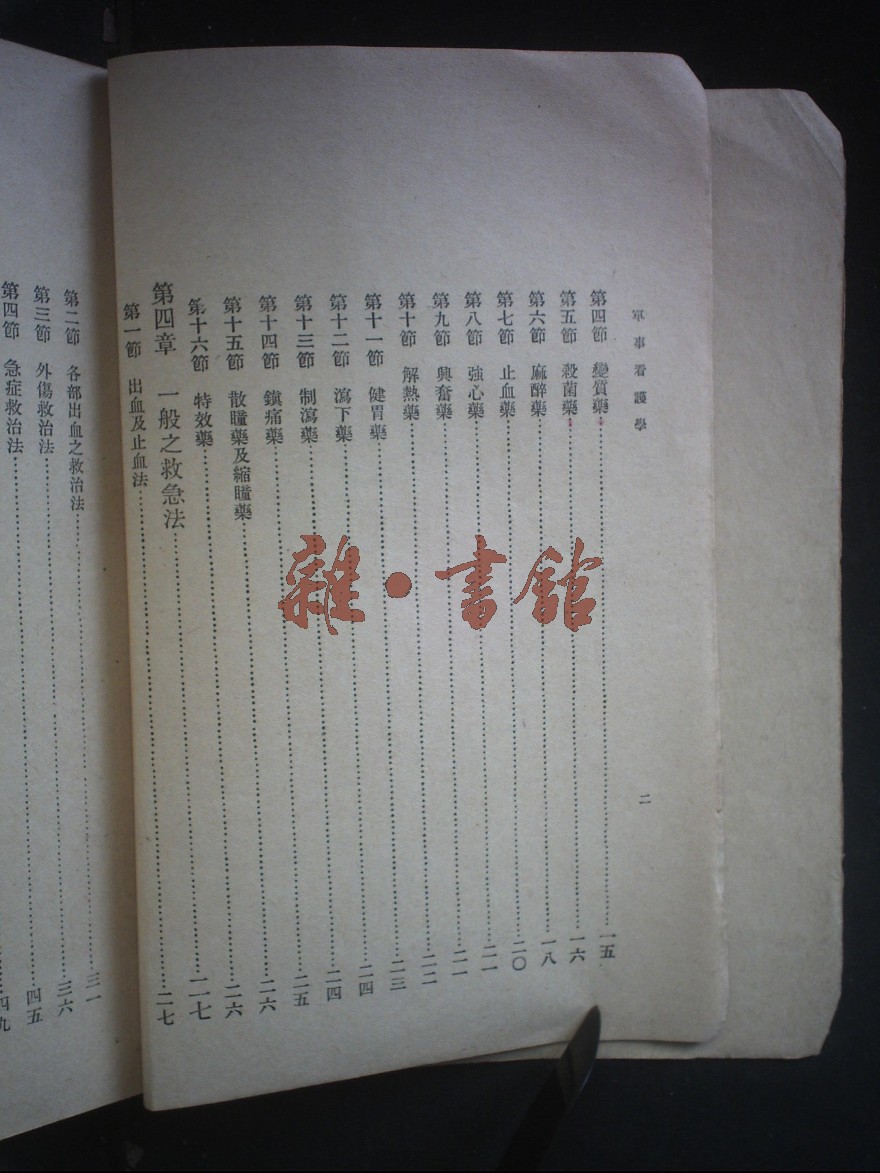 軍事看護學
二
第四節 變質藥……一五
第五節 殺菌藥……一六
第六節 麻醉藥……一八
第七節 止血藥……二〇
第八節 強心藥……二一
第九節 興奮藥……二一
第十節 解熱藥……二二
第十一節 健胃藥……二三
第十二節 瀉下藥……二四
第十三節 制瀉藥……二四
第十四節 鎮痛藥……二五
第十五節 散瞳藥及縮瞳藥……二六
第十六節 特效藥……二六
第四章 一般之救急法……二七
第一節 出血及止血法……二七
第二節 各部出血之救治法……三一
第三節 外傷救治法……三六
第四節 急症救治法……四五
四九
雜·書館